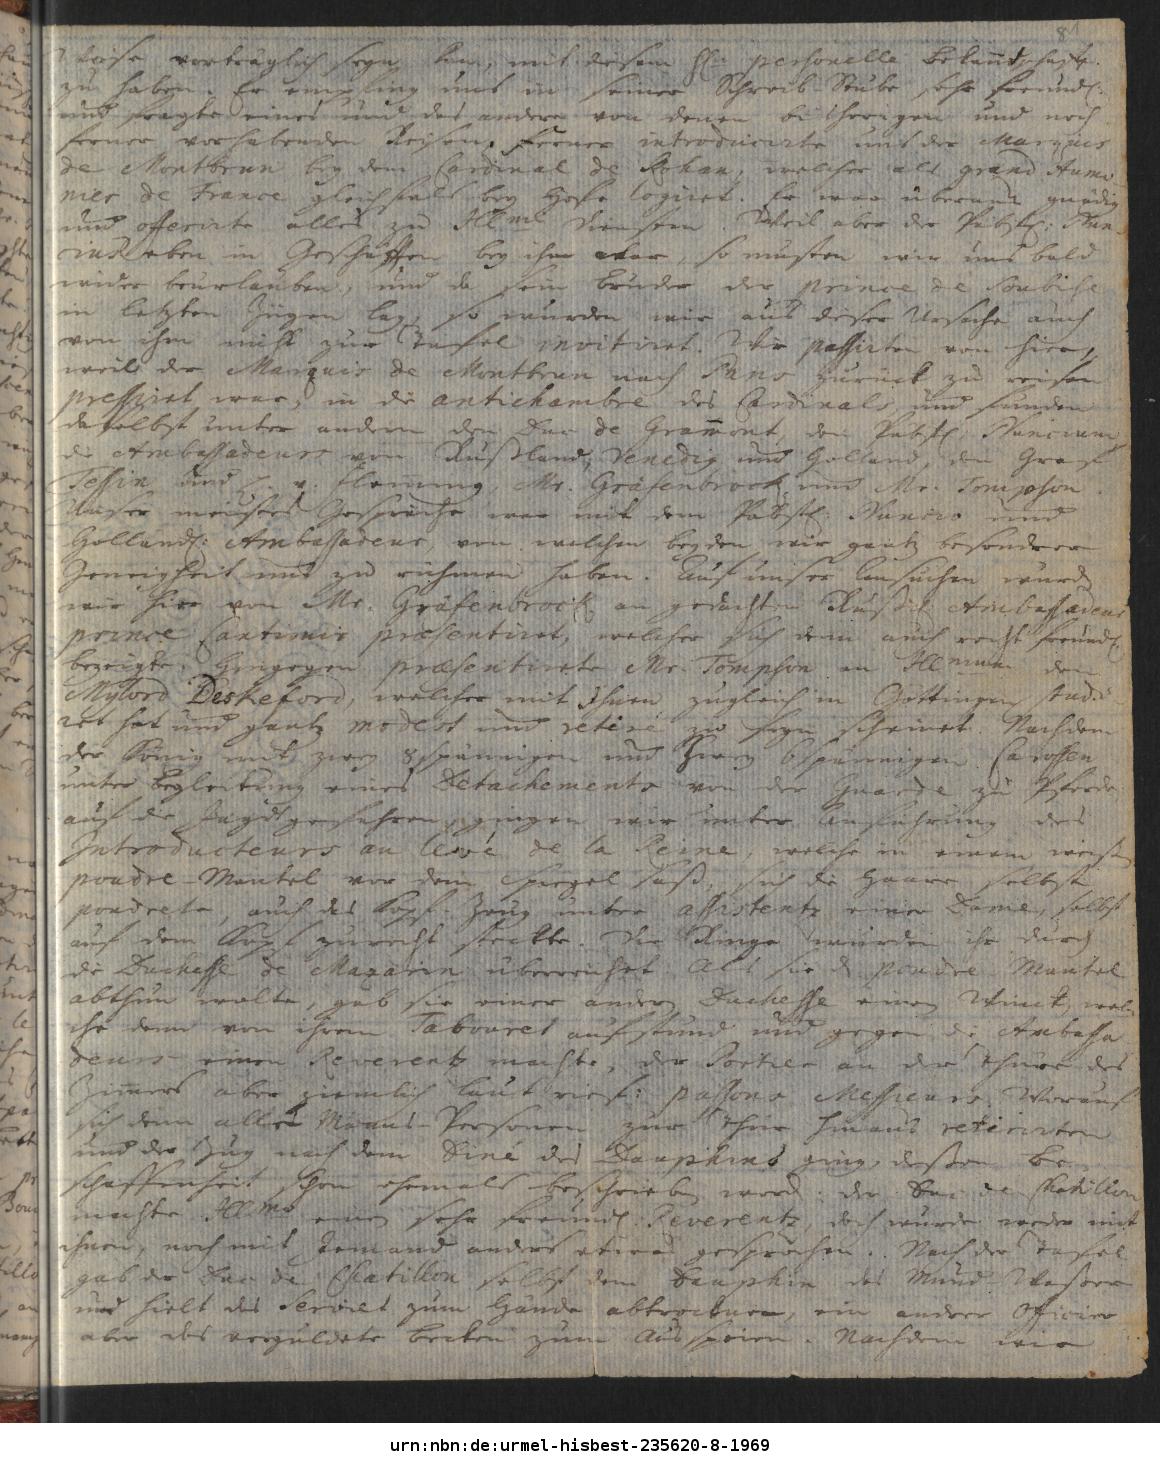 81
Weise vorträglich seyn kan, mit diesem H. personelle Bekanndschafft
zu haben. Er empfing uns in seiner Schreib-Stube sehr freundl.
und fragte eines und das andere von denen bisherigen und noch
ferner vorhabenden Reisen. Ferner introducirte uns der Marquis
de Montbrun bey dem Cardinal de Rohan, welcher als grand Aumo-
nier de France gleichfals bey Hofe logiret. Er war überaus gnädig
und offerirte alles zu Ill.mi Diensten. Weil aber der Päbstl. Nun-
cius eben in Geschäfften bey ihm war, so musten wir uns bald
wider beurlauben, und da sein Bruder der prince de Soubise
in letzten Zügen lag, so wurden wir aus dieser Ursache auch
von ihm nicht zur Tafel invitiret. Wir passirten von hier,
weil der Marquis de Montbrun nach Paris zurück zu reisen
pressiret war, in die antichambre des Cardinals, und funden
daselbst unter andern den Duc de Gramont, den Päbstl. Nuncium,
die Ambassadeurs von Rußland, Venedig und Holland, den Graf
Tessin und H. v. Flemming, Mr. Gräfenbrock und Mr. Tompson.
Unser meistes Gespräche war mit dem Päbstl. Nuncio und
Holländ. Ambassadeur, von welchen beyden wir gantz besondere
Geneigtheit uns zu rühmen haben. Auf unser Ansuchen wurden
wir hier von Mr. Gräfenbrock an gedachten Rußis. Ambassadeur
prince Cantimir præsentiret, welcher sich denn auch recht freundl.
bezeigte. Hingegen præsentirete Mr. Tompson an Ill.mum den
Mylord Deskeford, welcher mit Ihnen zugleich in Göttingen studi-
ret hat und gantz modest und retiré zu seyn scheinet. Nachdem
der König mit zwey 8spännigen und zwey 6spännigen Carossen
unter Begleitung eines Detachements von der Guarde zu Pferde
auf die Jagd gefahren, gingen wir unter Anführung des
Introducteurs au levé de la Reine, welche in einem weisen
poudre-Mantel vor dem Spiegel saß, sich die Haare selbst
poudrete, auch das Kopf-Zeug unter assistentz einer Dame, selbst
auf dem Kopf zurecht steckte. Die Ringe wurden ihr durch
die Duchesse de Mazarin überreichet. Als sie d. poudre Mantel
abthun wolte, gab sie einer andern Duchesse einen Winck, wel-
che denn von ihrem Tabouret aufstund und gegen die Ambassa
deurs einen Reverentz machte, der Portier an der Thüre des
Zimers aber ziemlich laut rief: passons Messieurs. Worauf
sich denn alle Manns-Personen zur Thür hinaus retirirten
und der Zug nach dem Diné des Dauphins ging, dessen Be-
schaffenheit schon ehemals beschrieben word. der Duc de Chatillon
machte Ill.mo einen sehr freundl. Reverentz, doch wurde weder mit
ihnen, noch mit Jemand anders etwas gesprochen. Nach der Tafel
gab der Duc de Chatillon selbst dem Dauphin das Mund-Wasser
und hielt das Serviet zum Hände abtrocknen, ein andrer Officier
aber das vergüldete Becken zum Ausspeien. Nachdem wir
urn:nbn:de:urmel-hisbest-235620-8-1969